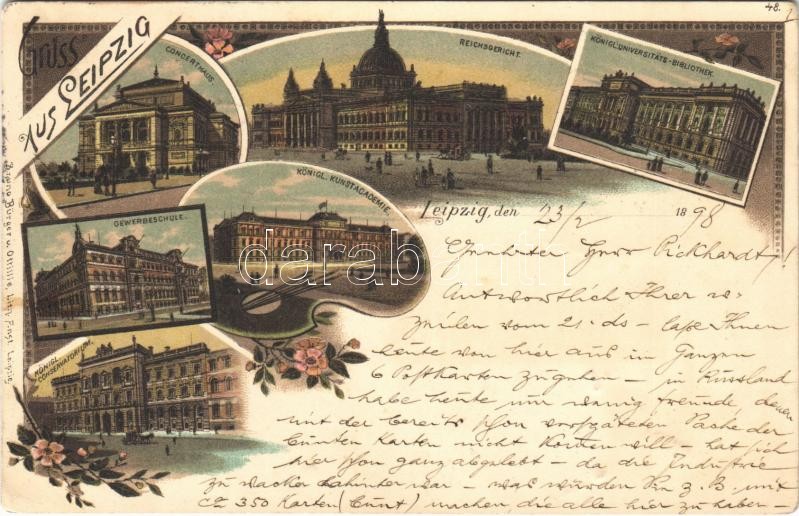 48.
Gruss
aus Leipzig
CONCERTHAUS.
REICHSGERICHT.
KÖNIGL. UNIVERSITÄTS-BIBLIOTHEK.
GEWERBESCHULE.
KÖNIGL. KUNSTACADEMIE.
KÖNIGL.
CONSERVATORIUM.
Bruno Bürger u. Ottillie, Lith. Anst. Leipzig.
darabanth.com
Leipzig, den 23/2 1898
Geehrter Herr Pickhardt!
Antwortlich Ihrer w.
Zeilen vom 21. ds - lasse Ihnen
heute von hier aus in Ganzen
6 Postkarten zugehen - in Russland
habe heute nur wenig Freunde denen
mit der bereits schon
bunten Karten nicht kommen will - hat sich
hier schon ganz abgelebt - da die Industrie
zu wacker dahinter war - was würden Sie z. B. mit
ca 350 Karten (bunt) machen, die alle hier zu haben -